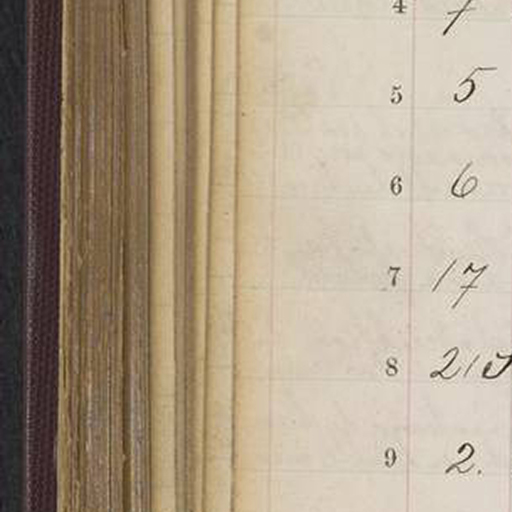 4 7
5 5
6 6
7 17
8 215
9 2.